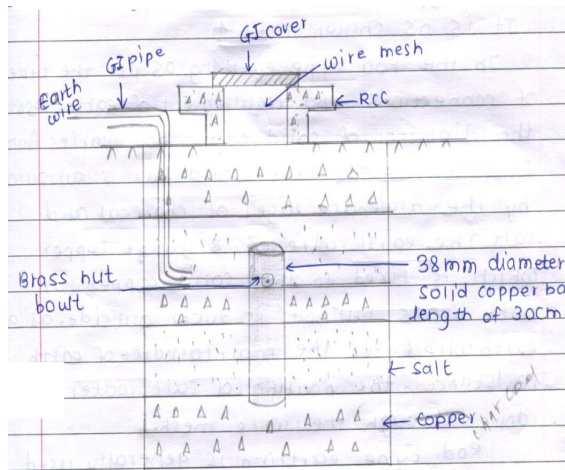 GI cover
GI pipe
wire mesh
Earth
wire
RCC
Brass nut
boult
38mm diameter
solid copper ba
length of 30cm
salt
copper
charcoal